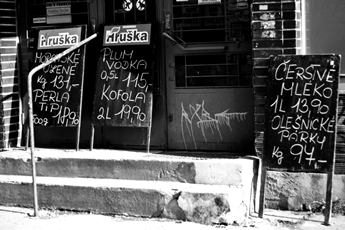 Hruška
MRAŽENÉ
Kg 137,-
PERLA
TIP
500g 18,90
Hruška
PLUM
VODKA
0,5l 115,-
KOFOLA
2L 19,90
ČERSTVÉ
MLÉKO
1L 13,90
OLEŠNICKÉ
PÁRKY
Kg 97,-